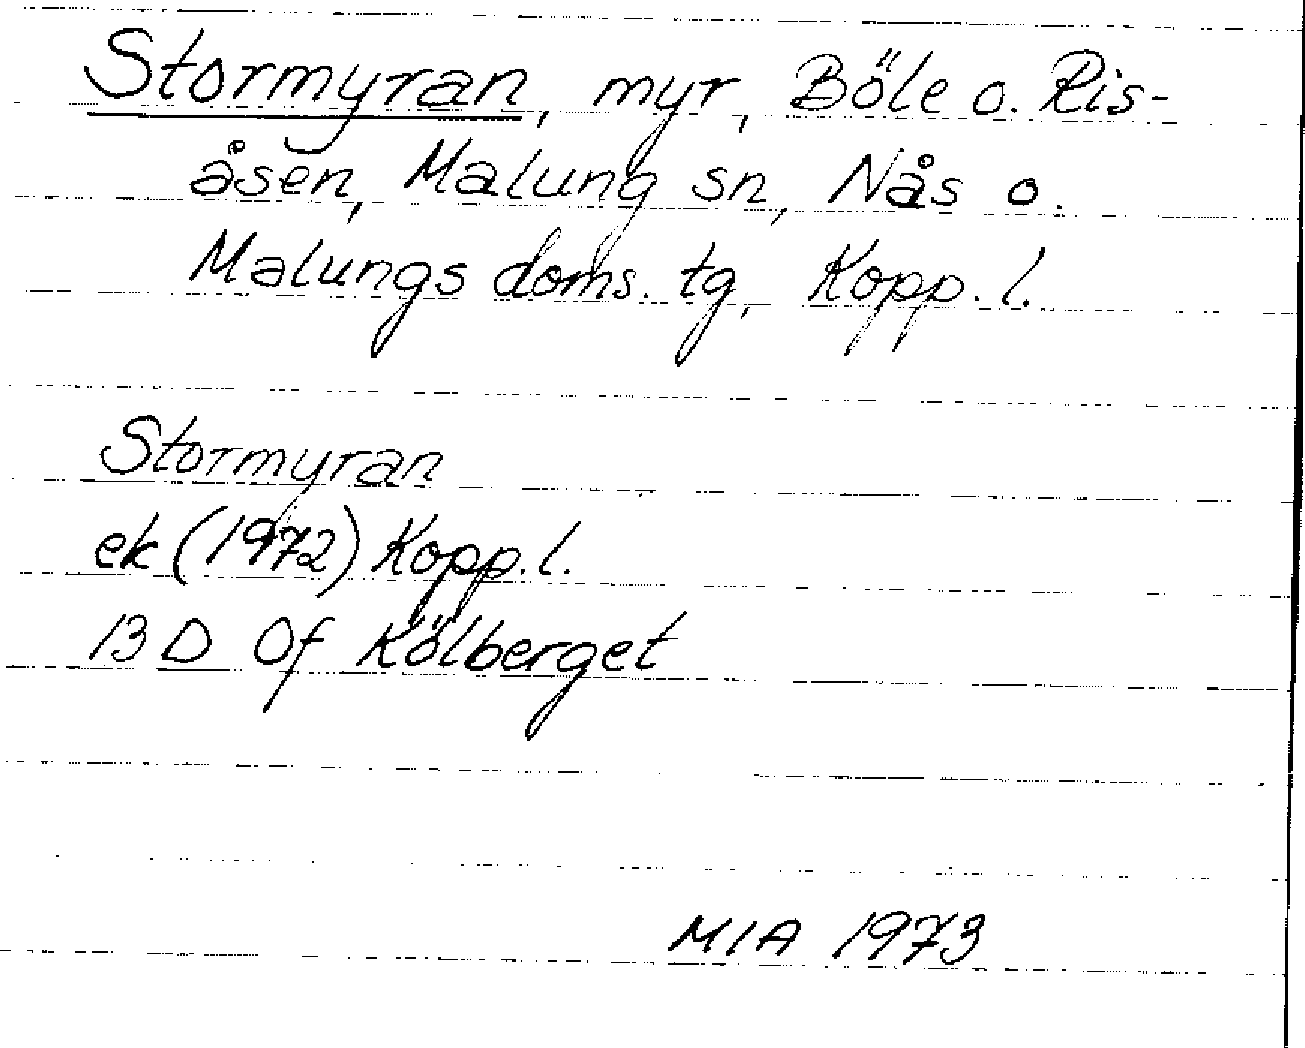 Stormyran, myr, Böle o. Ris-
åsen, Malung sn, Nås o.
Malungs doms. tg, Kopp. l.
Stormyran
ek (1972) Kopp. l.
13 D 0f Kölberget
MIA 1973